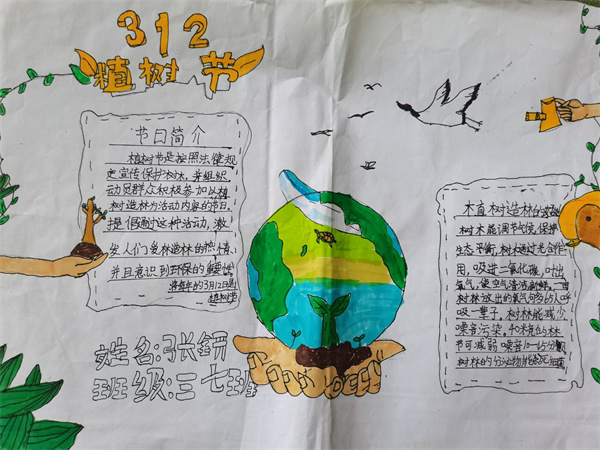 312
植树节
节日简介
植树节是按照法律规
定宣传保护树木,并组织
动员群众积极参加以植
树造林为活动内容的节日。
提倡通过这种活动,激
发人们爱林造林的热情、
并且意识到环保的重要性
将每年的3月12日定
植树节
姓名:张妍
班级:三七班
植树造林的
树木能调节气候,保护
生态平衡,树木通过光合作
用,吸进二氧化碳,吐出
氧气,使空气清洁新鲜,一亩
树林放出的氧气够65人呼
吸一辈子,树林能减少
噪音污染。40米宽的林
节可减弱噪音10—15分贝
树林的分泌物能杀死细菌